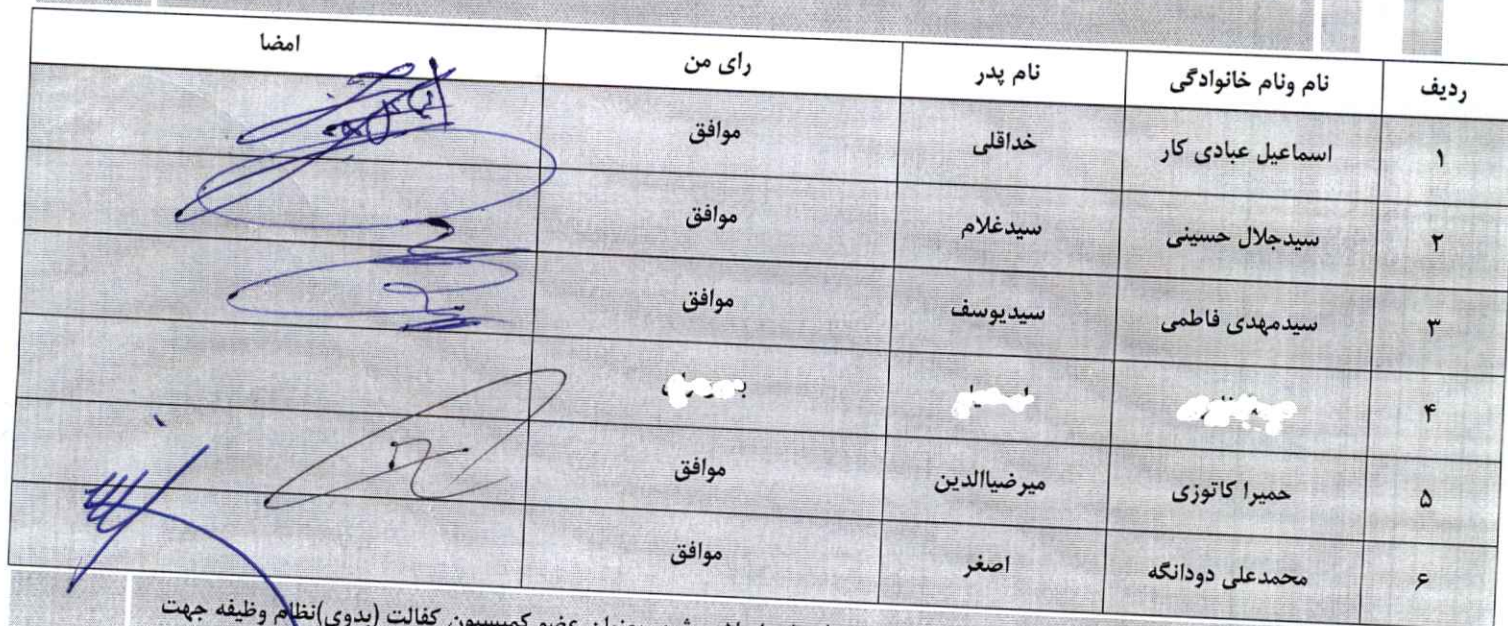 ردیف نام ونام خانوادگی نام پدر رای من امضا
۱ اسماعیل عبادی کار خداقلی موافق
۲ سیدجلال حسینی سیدغلام موافق
۳ سیدمهدی فاطمی سیدیوسف موافق
۴
۵ حمیرا کاتوزی میرضیاالدین موافق
۶ محمدعلی دودانگه اصغر موافق
عضو کمیسیون کفالت (بدوی)نظام وظیفه جهت